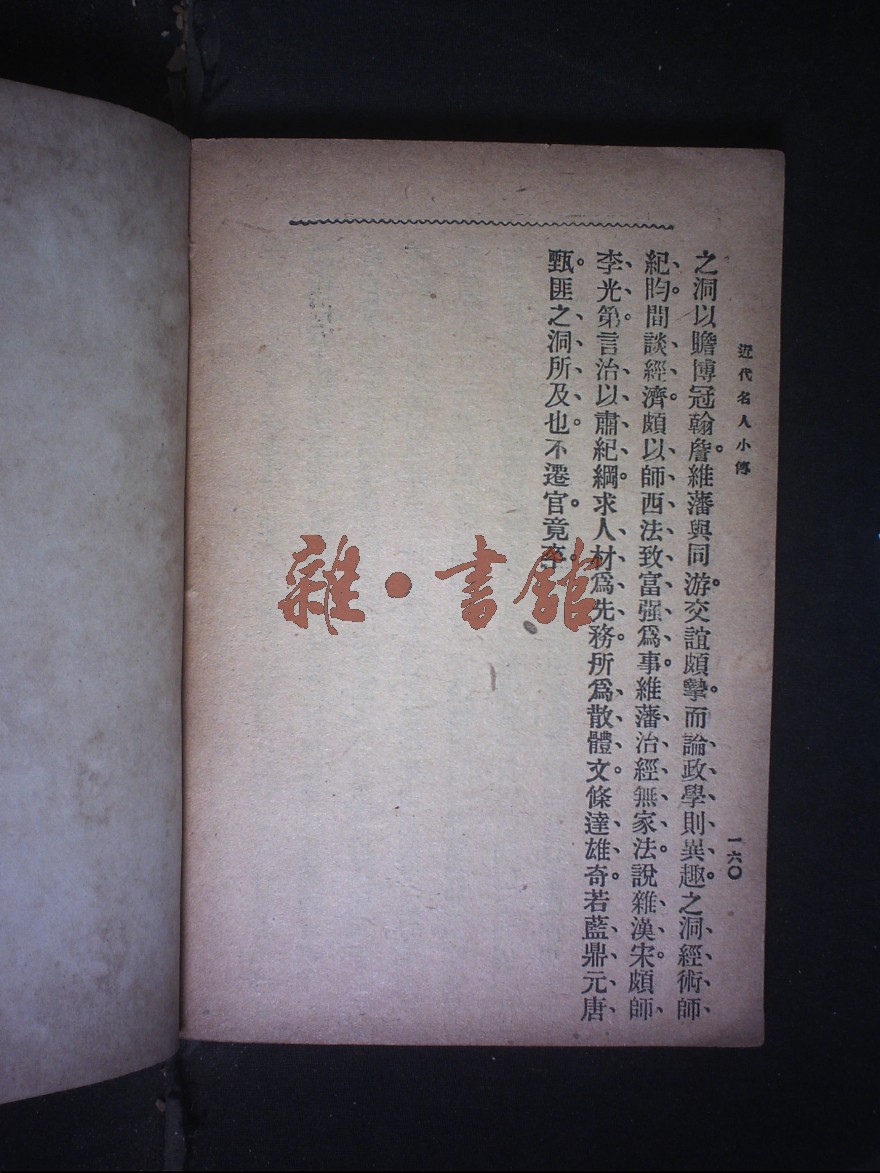 近代名人小傳
一六〇
之洞以贍博冠翰詹。維藩與同游。交誼頗摯。而論政學則異趣。之洞經術師
紀昀。間談經濟。頗以師西法致富强爲事。維藩治經無家法。說雜漢宋。頗師
李光第。言治以肅紀綱。求人材爲先務。所爲散體文。條達雄奇。若藍鼎元唐
甄。匪之洞所及也。不遷官。竟卒。
雜·書館